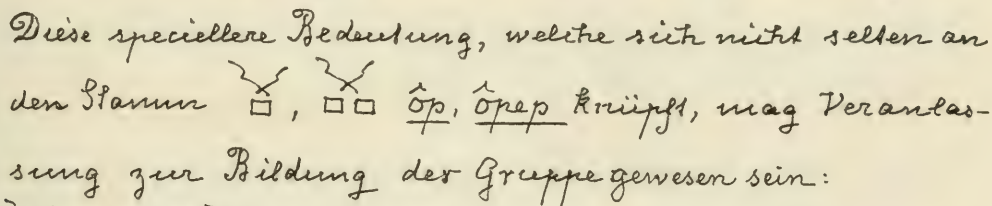 Diese speciellere Bedeutung, welche sich nicht selten an
den Stamm , ôp, ôpep knüpft, mag Veranlas-
sung zur Bildung der Gruppe gewesen sein: